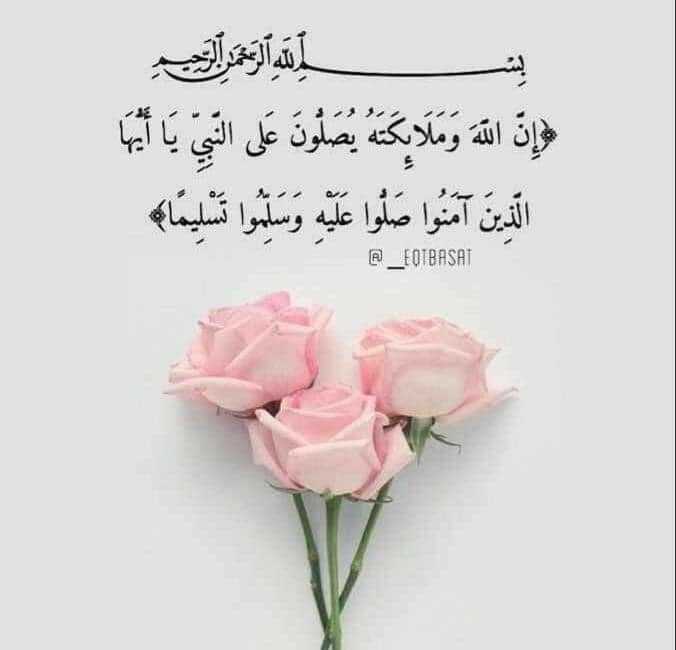 بِسْمِ اللَّهِ الرَّحْمَٰنِ الرَّحِيمِ
﴿إِنَّ اللَّهَ وَمَلَائِكَتَهُ يُصَلُّونَ عَلَى النَّبِيِّ يَا أَيُّهَا
الَّذِينَ آمَنُوا صَلُّوا عَلَيْهِ وَسَلِّمُوا تَسْلِيمًا﴾
@__EQTBASAT